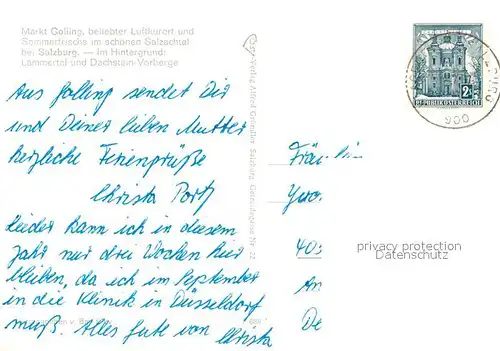 Markt Golling, beliebter Luftkurort und
Sommerfrische im schönen Salzachtal
bei Salzburg. — Im Hintergrund:
Lammertal und Dachstein-Vorberge
Aus Golling sendet Dir
und Deiner lieben Mutter
herzliche Feriengrüße
Christa Portz
Leider kann ich in diesem
Jahr nur drei Wochen hier
bleiben, da ich im September
in die Klinik in Düsseldorf
muß. Alles Gute von Christa
Salzburg
REPUBLIK ÖSTERREICH
Fräu
40
privacy protection
Datenschutz
An
De